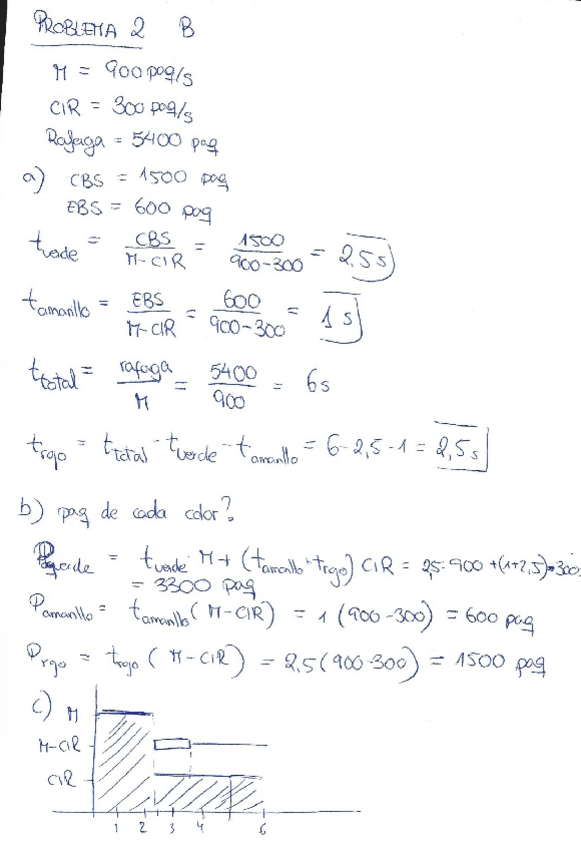 PROBLEMA 2 B
M = 900 paq/s
CIR = 300 paq/s
Rafaga = 5400 paq
a) CBS = 1500 paq
EBS = 600 paq
tverde = CBS / M-CIR = 1500 / 900-300 = 2,5 s
tamarillo = EBS / M-CIR = 600 / 900-300 = 1 s
ttotal = rafaga / M = 5400 / 900 = 6s
trojo = ttotal - tverde - tamarillo = 6-2,5-1 = 2,5 s
b) paq de cada color?
Pverde = tverde · M + (tamarillo + trojo) CIR = 2,5·900 + (1+2,5)·300=
= 3300 paq
Pamarillo = tamarillo (M-CIR) = 1 (900-300) = 600 paq
Projo = trojo (M-CIR) = 2,5 (900-300) = 1500 paq
c) M
M-CIR
CIR
1 2 3 4 6